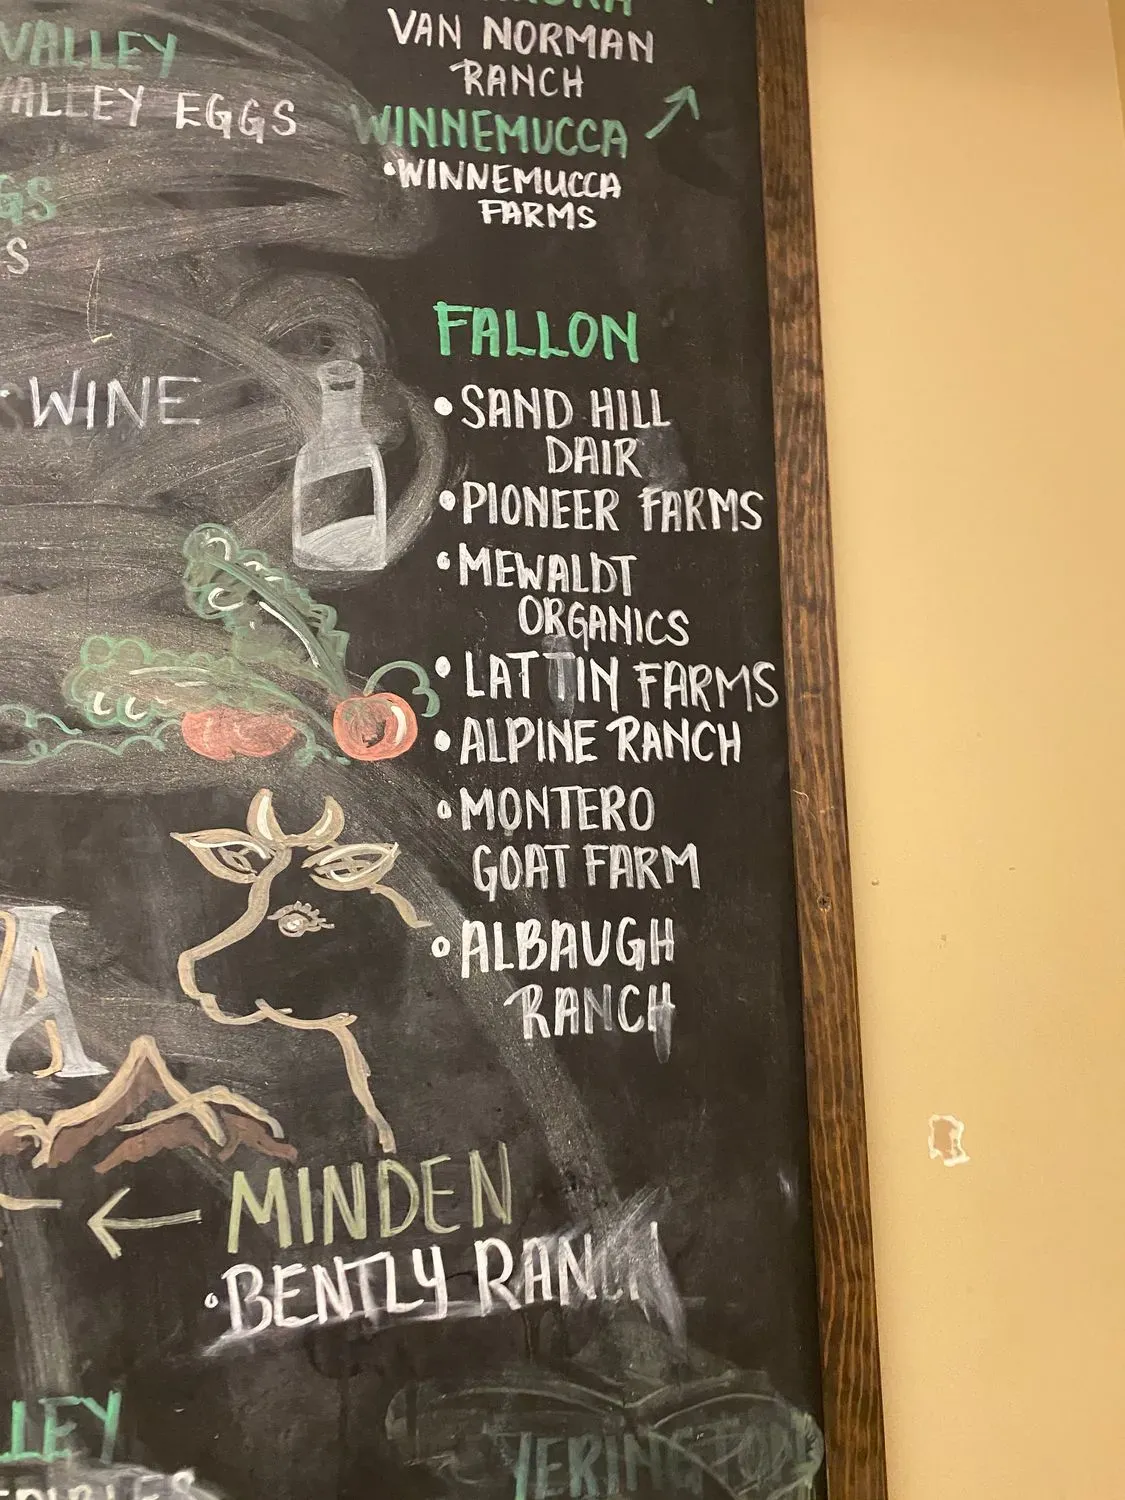 VALLEY
VALLEY EGGS
GS
S
WINE
VAN NORMAN
RANCH
WINNEMUCCA
•WINNEMUCCA
FARMS
FALLON
•SAND HILL
DAIR
•PIONEER FARMS
•MEWALDT
ORGANICS
•LATTIN FARMS
•ALPINE RANCH
•MONTERO
GOAT FARM
•ALBAUGH
RANCH
A
MINDEN
•BENTLY RANCH
LLEY
EDIBLES
YERINGTON